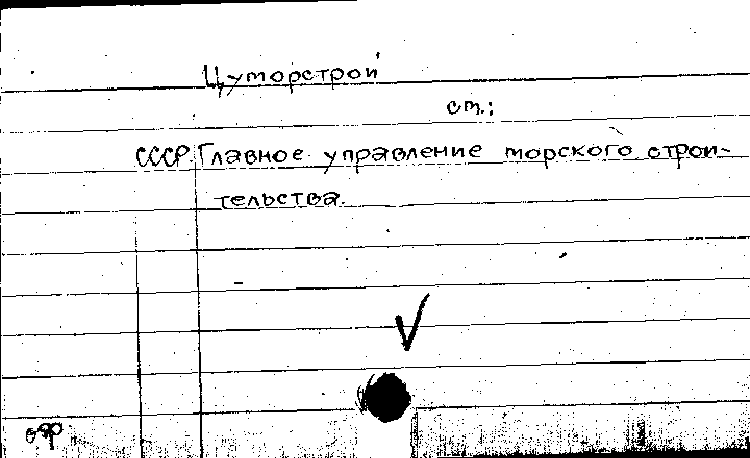 Цуморстрой
см.:
СССР. Главное управление морского строи-
тельства.
офр